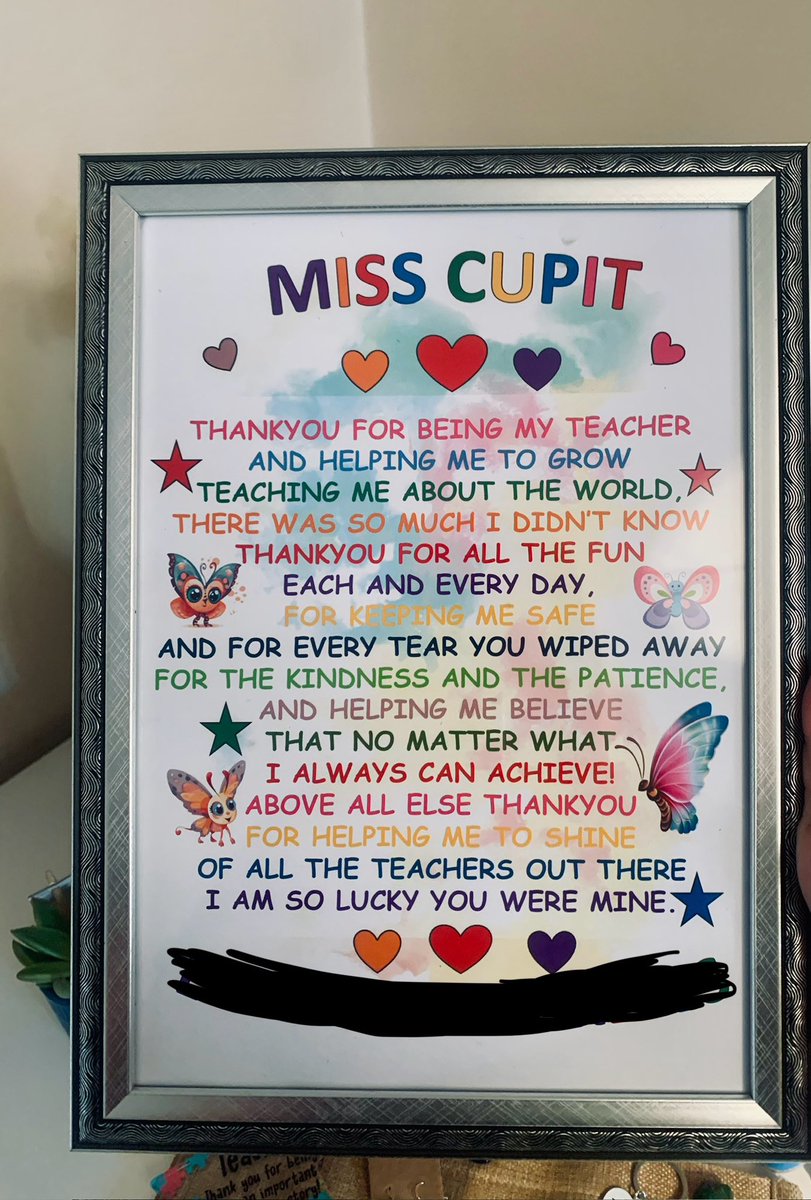 MISS CUPIT
THANKYOU FOR BEING MY TEACHER
AND HELPING ME TO GROW
TEACHING ME ABOUT THE WORLD,
THERE WAS SO MUCH I DIDN'T KNOW
THANKYOU FOR ALL THE FUN
EACH AND EVERY DAY,
FOR KEEPING ME SAFE
AND FOR EVERY TEAR YOU WIPED AWAY
FOR THE KINDNESS AND THE PATIENCE,
AND HELPING ME BELIEVE
THAT NO MATTER WHAT
I ALWAYS CAN ACHIEVE!
ABOVE ALL ELSE THANKYOU
FOR HELPING ME TO SHINE
OF ALL THE TEACHERS OUT THERE
I AM SO LUCKY YOU WERE MINE.
Thank you for being
an important